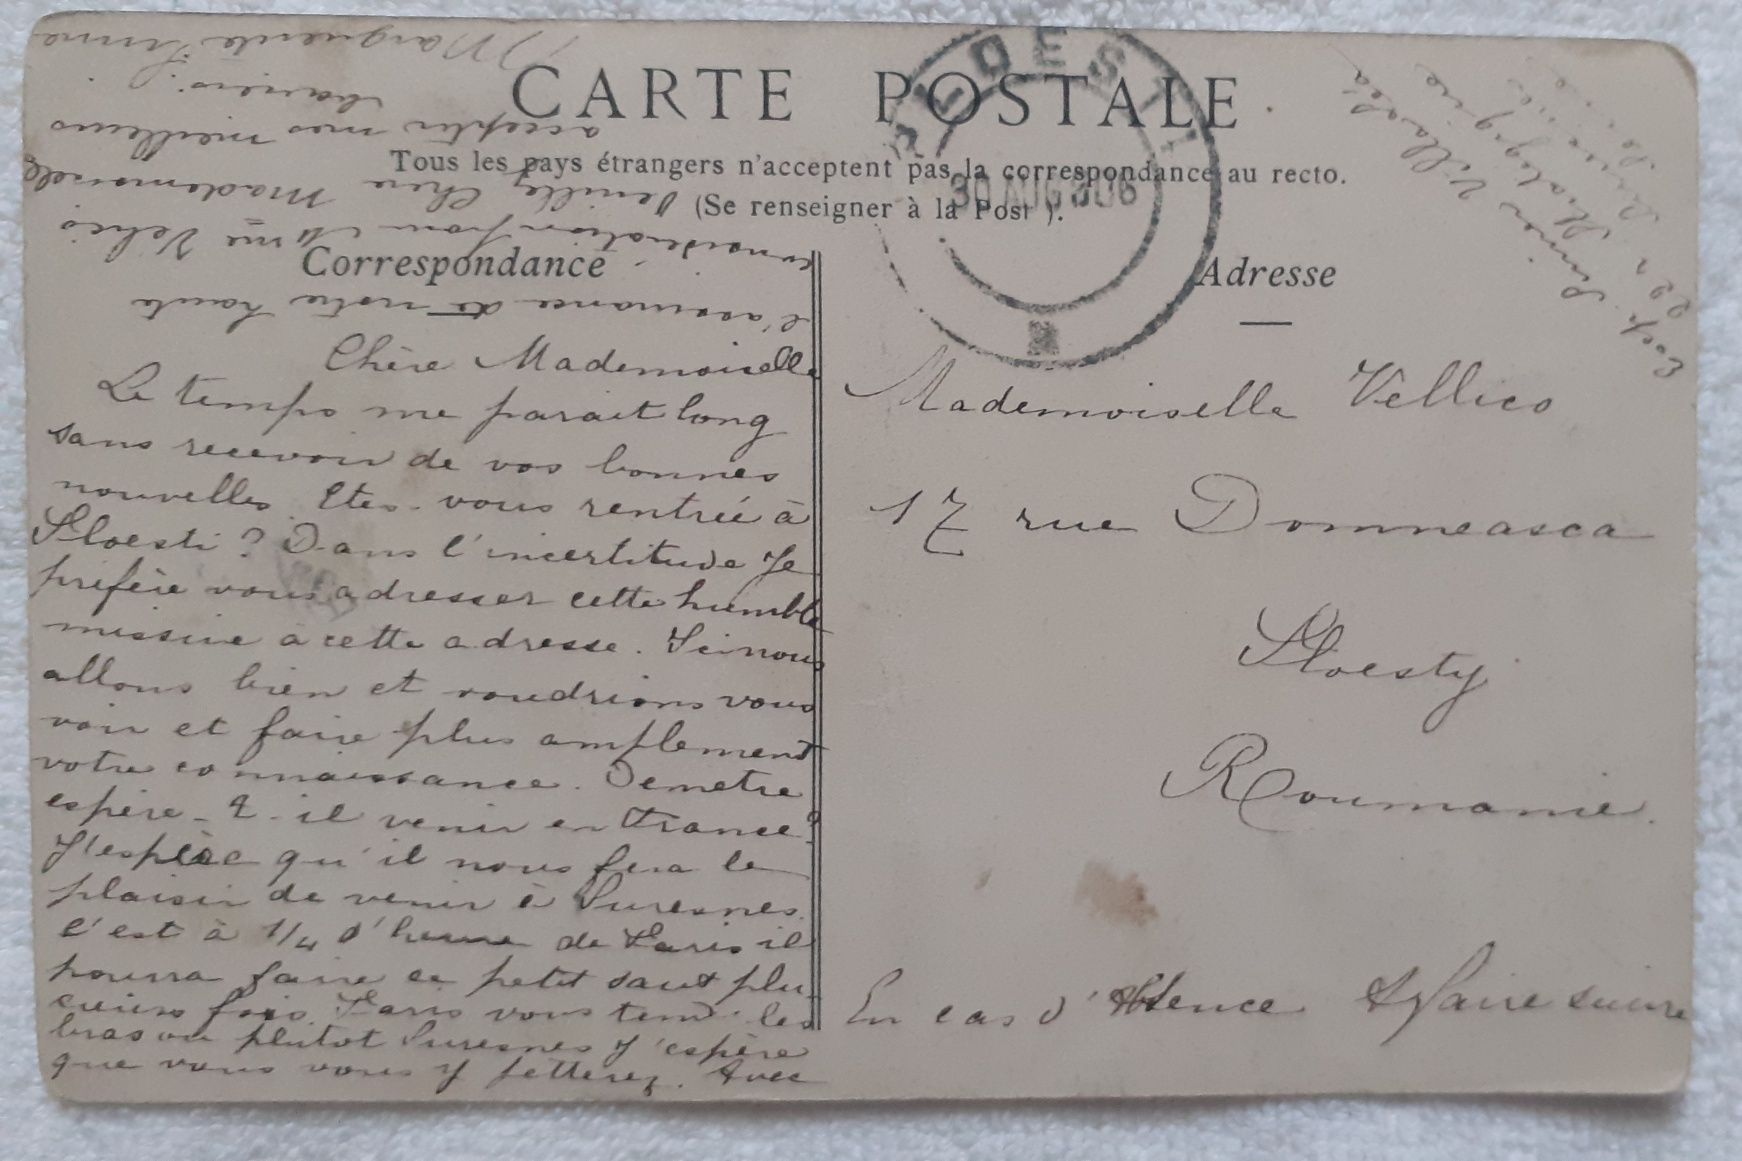 CARTE POSTALE
Tous les pays étrangers n'acceptent pas la correspondance au recto.
(Se renseigner à la Post ).
Correspondance
Adresse
PLOESTI
30 AUG 906
Chère Mademoiselle
Le temps me parait long
sans recevoir de vos bonnes
nouvelles. Etes-vous rentrée à
Ploesti ? Dans l'incertitude je
préfère vous adresser cette humble
missive à cette adresse. Ici nous
allons bien et voudrions vous
voir et faire plus amplement
votre connaissance. Demetre
espère-t-il venir en France ?
J'espère qu'il nous fera le
plaisir de venir à Suresnes.
c'est à 1/4 d'heure de Paris il
pourra faire ce petit saut plu-
sieurs fois. Paris vous tend les
bras ou plutot Suresnes j'espère
que vous vous y jetterez. Avec
l'assurance de notre haute
considération pour Mme Velico
Veuillez Chère Mademoiselle
accepter mes meilleurs
baisers.
Marguerite
Mademoiselle Véllico
17 rue Domneasca
Ploesty
Roumanie.
En cas d'Absence à faire suivre